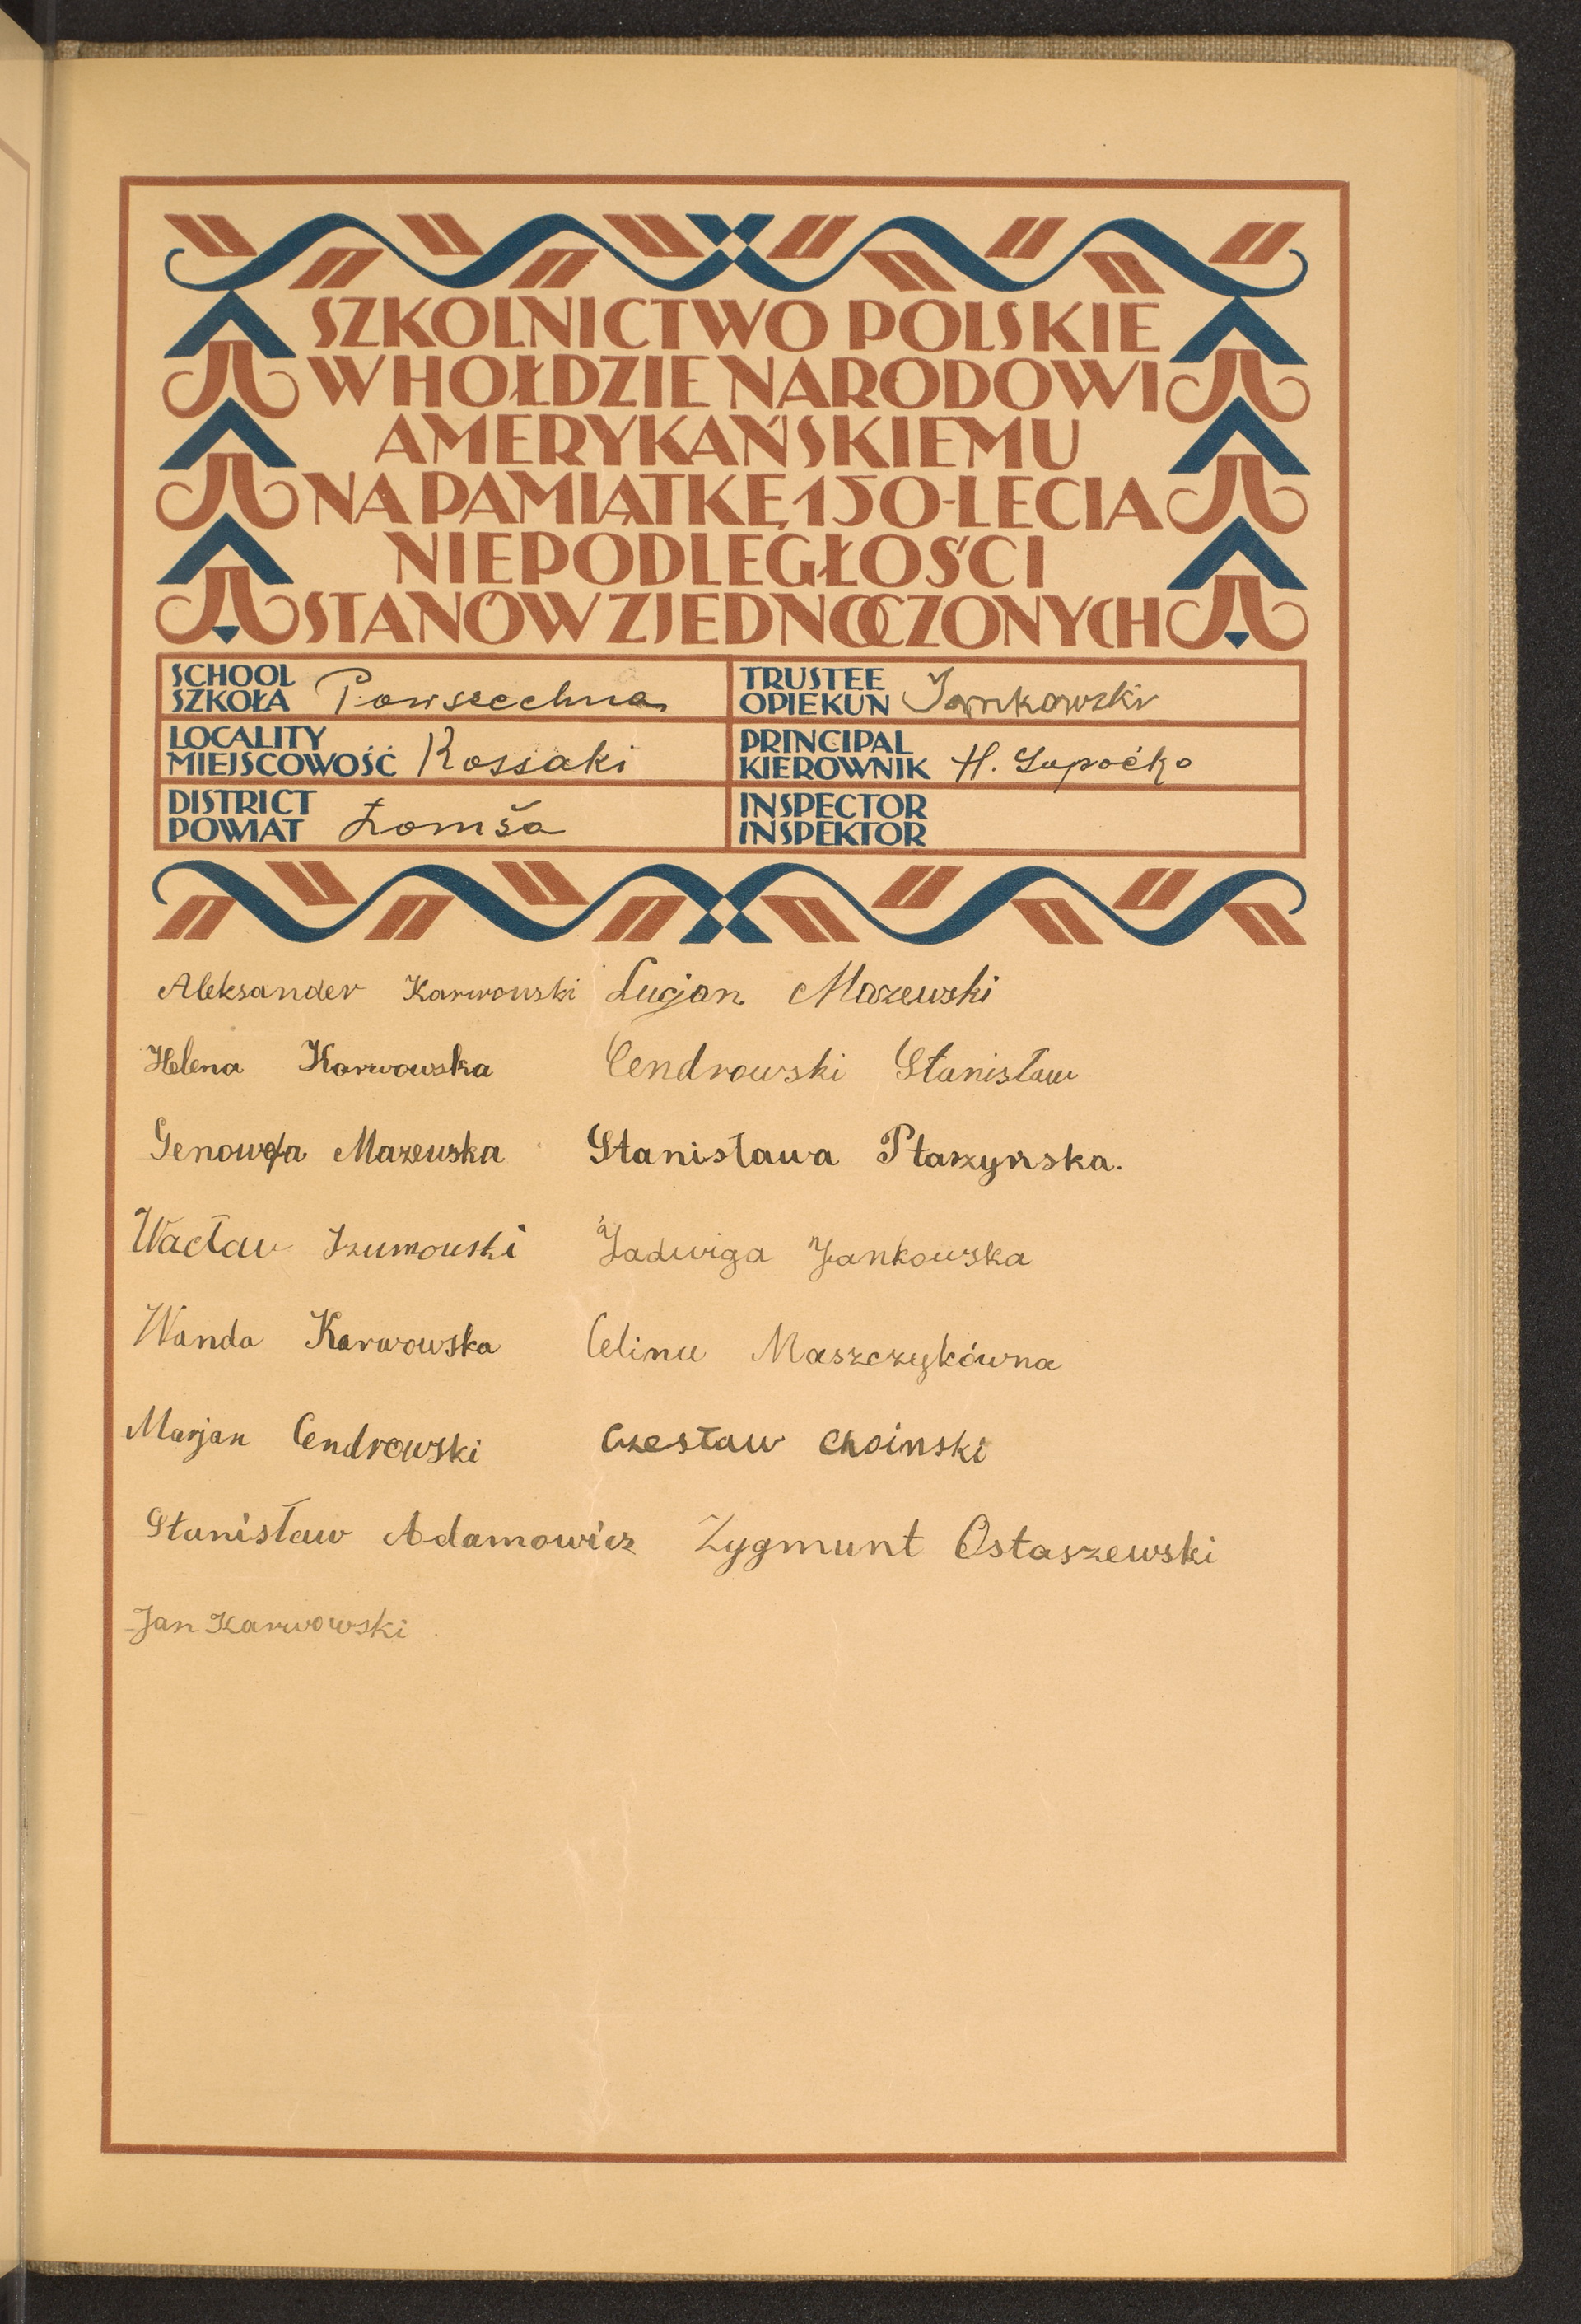 SZKOLNICTWO POLSKIE
W HOŁDZIE NARODOWI
AMERYKAŃSKIEMU
NA PAMIĄTKĘ 150-LECIA
NIEPODLEGŁOŚCI
STANÓW ZJEDNOCZONYCH
SCHOOL
SZKOŁA Powszechna
TRUSTEE
OPIEKUN Jankowski
LOCALITY
MIEJSCOWOŚĆ Kossaki
PRINCIPAL
KIEROWNIK H.
DISTRICT
POWIAT Łomża
INSPECTOR
INSPEKTOR
Aleksander Karwowski Lucjan Mazewski
Helena Karwowska Cendrowski Stanisław
Genowefa Mazewska Stanisława Ptaszynska.
Wacław Szumowski Jadwiga Jankowska
Wanda Karwowska Celina Maszczykówna
Marjan Cendrowski Czesław Choinski
Stanisław Adamowicz Zygmunt Ostaszewski
Jan Karwowski